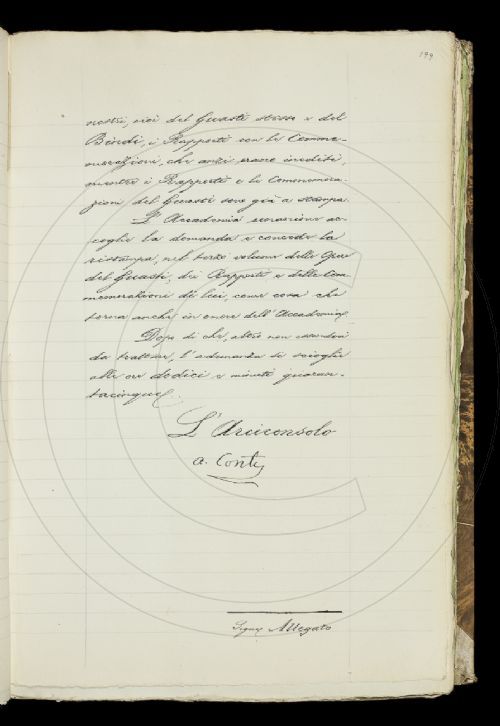 199
nostri, cioè del Guasti stesso e del
Bindi, i Rapporti con le Comme-
morazioni, che anzi erano inediti,
mentre i Rapporti e le Commemora-
zioni del Guasti sono già a stampa.
L'Accademia ac-
coglie la domanda e concede la
ristampa, nel terzo volume delle Opere
del Guasti, dei Rapporti e delle Com-
memorazioni di lui, come cosa che
torna anche in onore dell'Accademia.
Dopo di che, altro non essendovi
da trattare, l'adunanza si scioglie
alle ore dodici e minuti quaran-
tacinque.
L'Arciconsolo
A. Conti
Segue Allegato